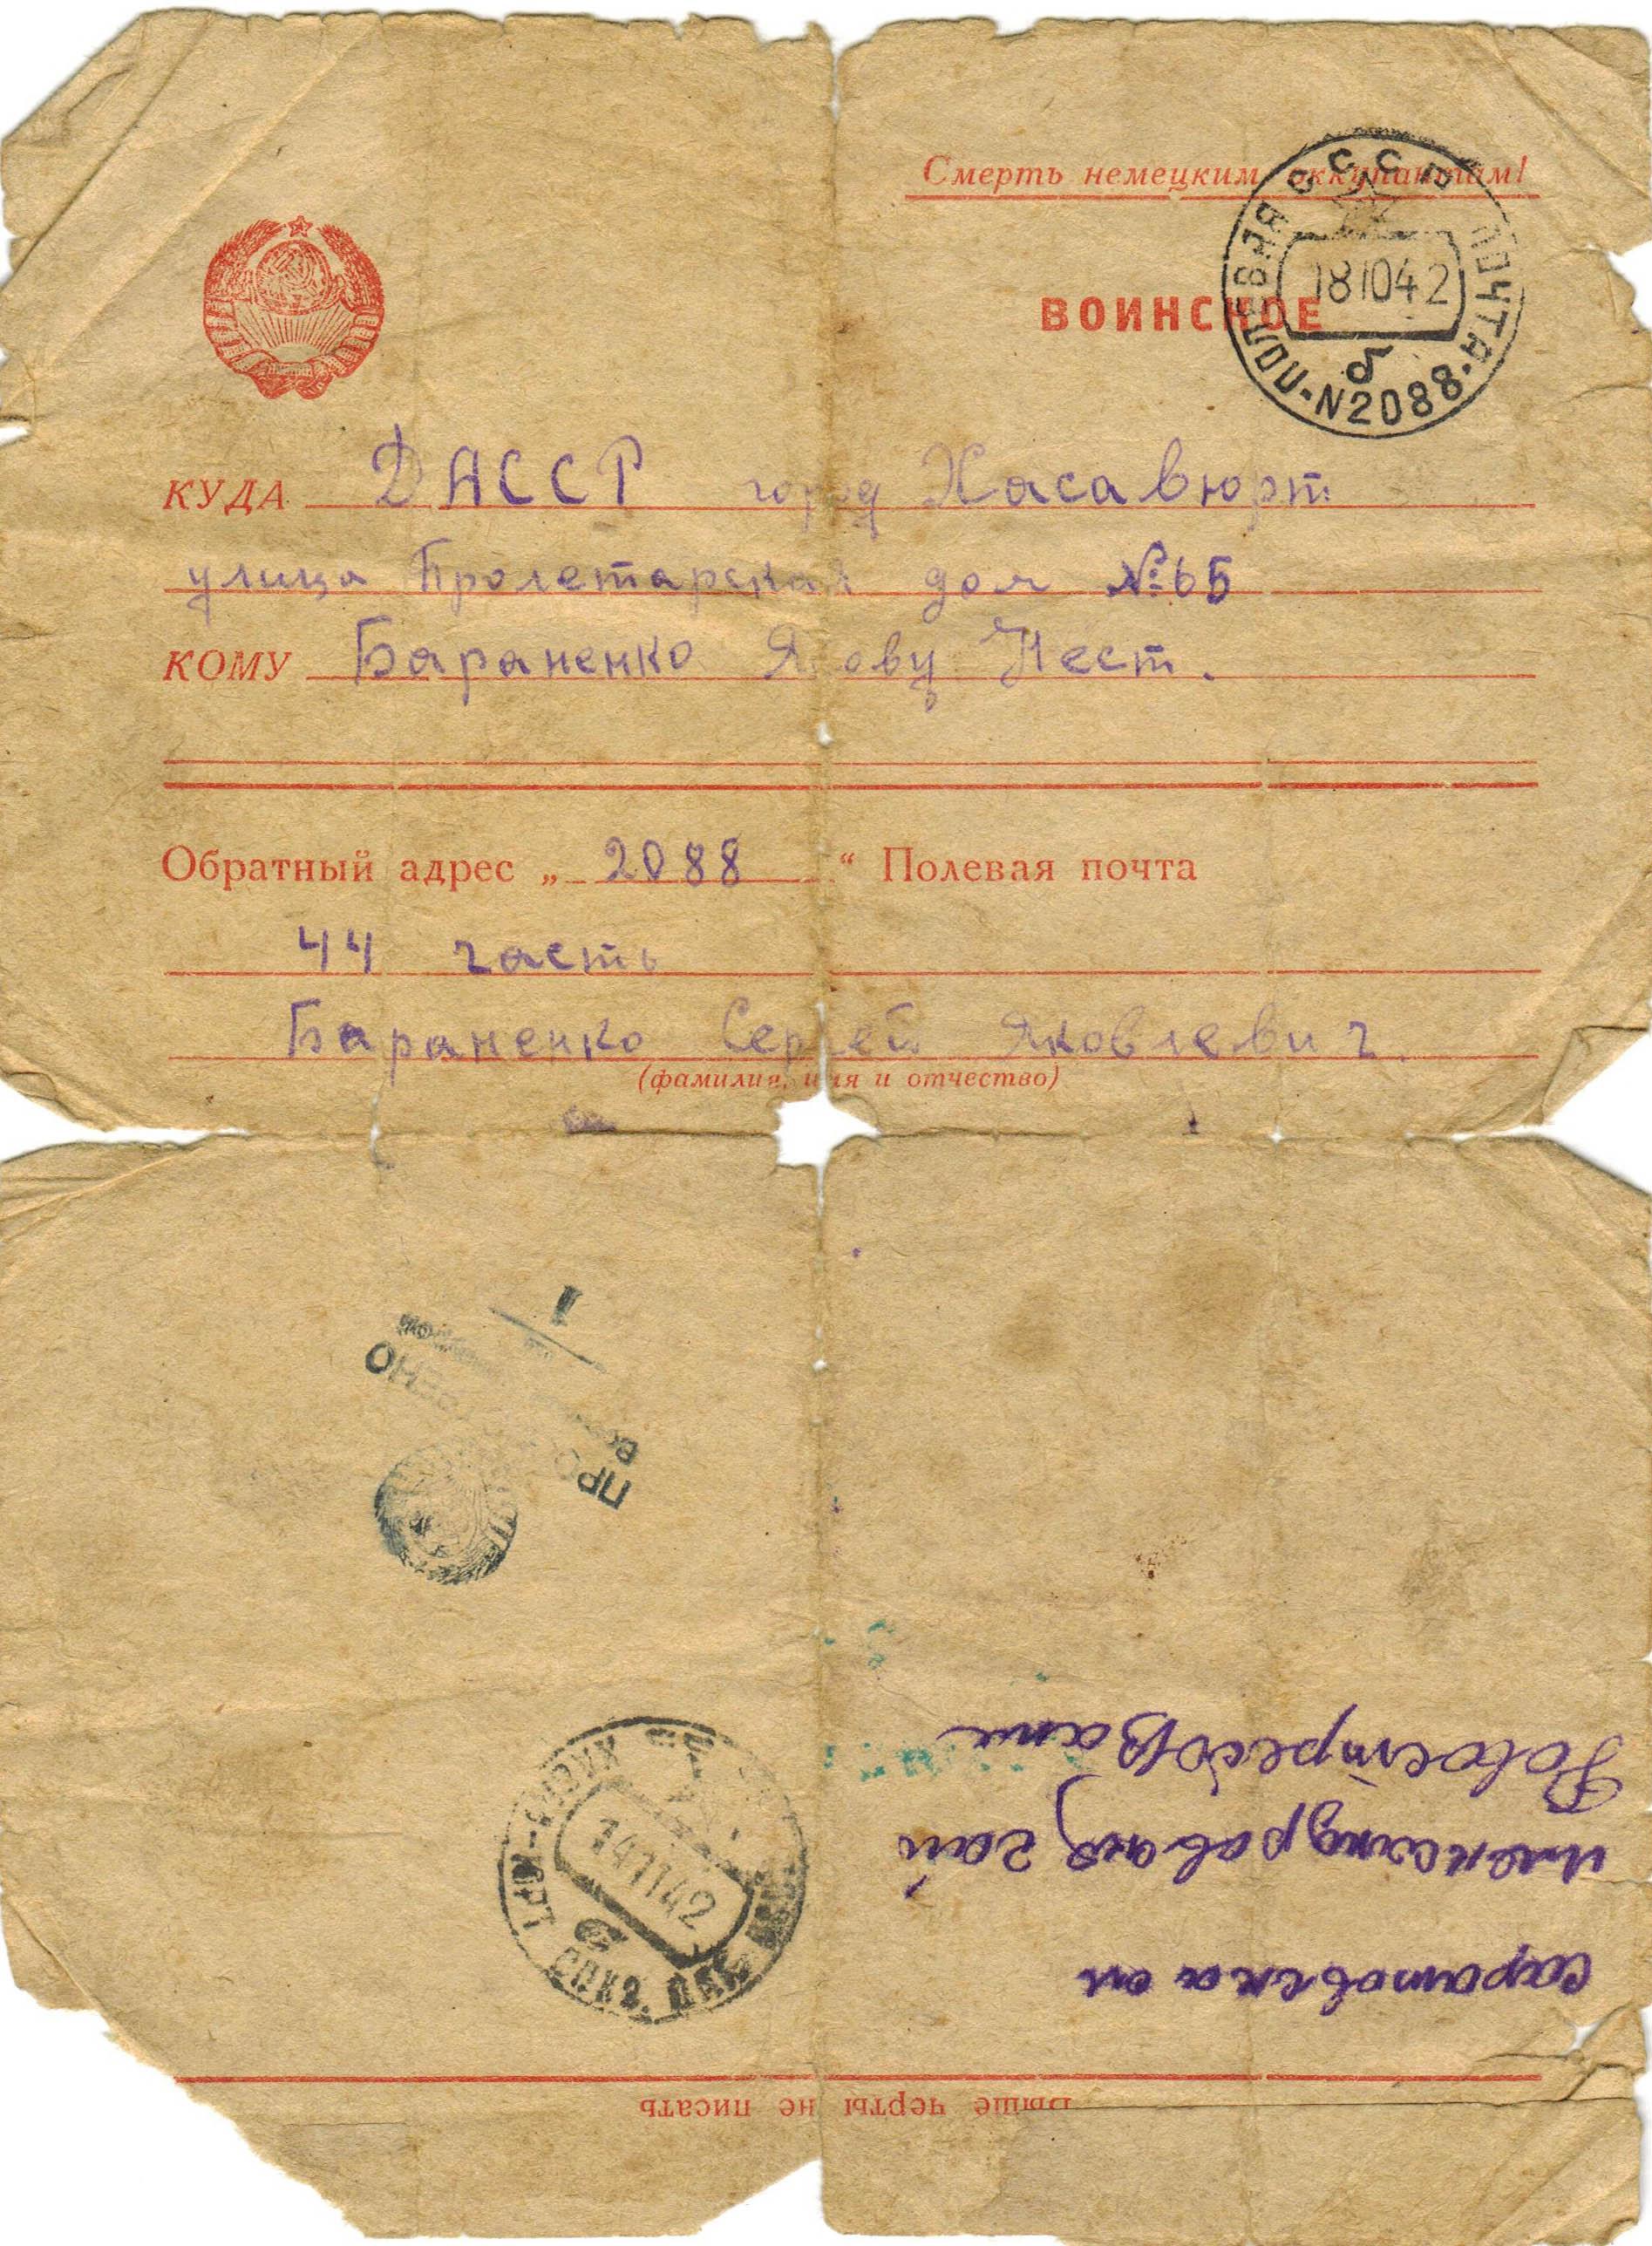 Смерть немецким оккупантам!
ВОИНСКОЕ
СССР ПОЛЕВАЯ ПОЧТА
181042
б
N2088
КУДА ДАССР город Хасавюрт
улица Пролетарская дом №65
КОМУ Бараненко Якову Нест.
Обратный адрес „ 2088 “ Полевая почта
44 часть
Бараненко Сергей Яковлевич.
(фамилия, имя и отчество)
1
ХАСАВ-ЮРТ
141142
Выше черты не писать
саратовска ол